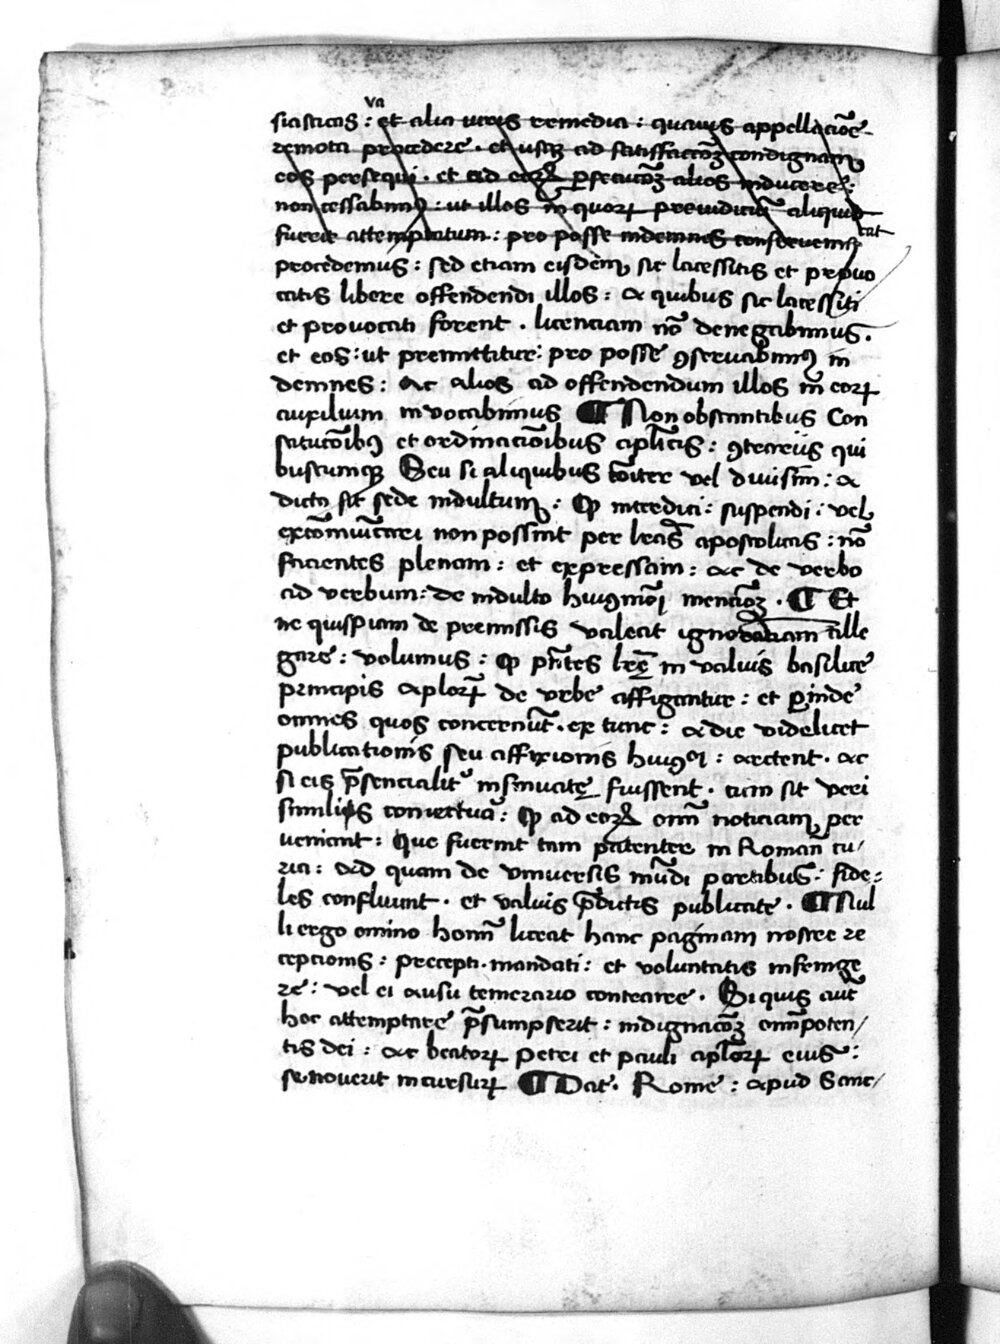 va
siasticas : et alia iuris remedia : quauis appellacōe
remota procedere . et usqꝫ ad satisfaccōꝫ condignam
eos persequi . et ad eoꝝ ꝑsecucōꝫ alios inducere :
non cessabimꝰ : ut illos in quoꝝ preiudiciū aliquid
cat
fuerit attemptatum : pro posse indemnes conseruemꝰ
procedemus : sed etiam eisdem sic lacessitis et prouo
catis libere offendendi illos : a quibus sic lacessiti
et prouocati forent . licenciam nō denegabimus .
et eos : ut premittitur : pro posse ꝯseruabimꝰ in
demnes : ac alios ad offendendum illos in eoꝝ
auxilium inuocabimus ¶ Non obstantibus Con
stitucōibꝰ et ordinacōibus aplicis : ꝯtrariis qui
buscumqꝫ Seu si aliquibus cōiter vel diuisim : a
dicta sit sede indultum : ꝙ interdici : suspendi : vel
excōmuicari non possint per lr̄as apostolicas : nō
facientes plenam : et expressam : ac de verbo
ad verbum : de indulto huiꝰmōi mencōꝫ . ¶ Et
ne quispiam de premissis valeat ignorātiam alle
gare : volumus : ꝙ pn̄tes lr̄e in valuis basilice
principis aploꝝ de vrbe affigantur : et ꝑinde
omnes quos concernūt . ex tunc : a die videlicet
publicationis seu affixionis huiꝰmōi : arctent . ac
si eis p̄sencialitꝰ insinuate fuissent . cum sit veri
similis coniectura : ꝙ ad eoꝝ om̄ī noticiam per
ueniant : Que fuerint tam patenter in Roman̄ cu/
ria : ad quam de vniuersis mūdi partibus : fide=
les confluunt . et valuis p̄dictis publicate . ¶ Nul
li ergo omīno homī liceat hanc paginam nostre re
cepcionis : precepti . mandati : et voluntatis infringe
re : vel ei ausu temerario contraire . Si quis aut̄
hoc attemptare p̄sumpserit : indignacōꝫ om̄ipoten/
tis dei : ac beatoꝝ petri et pauli aploꝝ eius :
se nouerit incursuꝝ ¶ Dat̄ . Rome : apud Sanc/